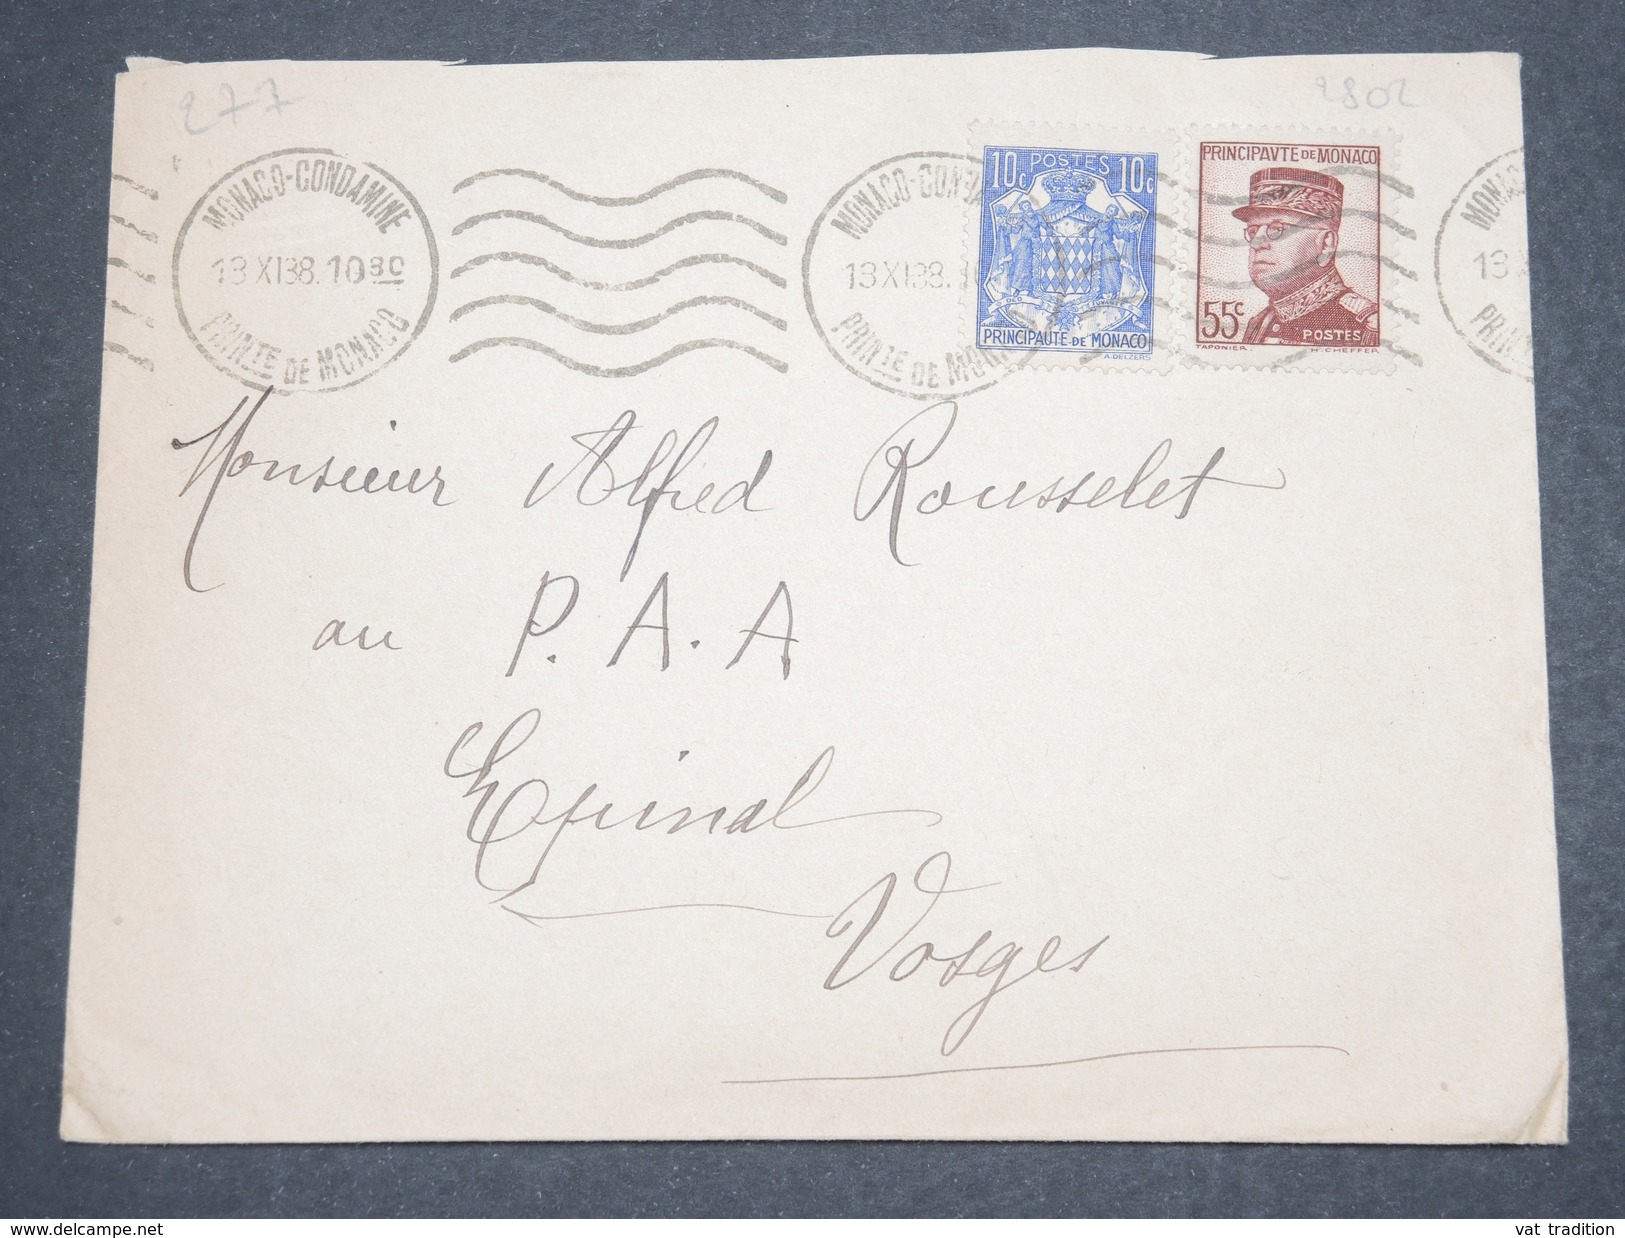 277
2802
MONACO-CONDAMINE
13 XI 38. 10 30
PRINTE DE MONACO
MONACO-CONDA
13 XI 38. 10
PRINTE DE MONACO
10c POSTES 10c
DEO JUVANTE
PRINCIPAUTE DE MONACO
A.DELZERS
PRINCIPAVTE DE MONACO
55c
POSTES
TAPONIER.
H.CHEFFER
MONA
13 X
PRIN
Monsieur Alfred Rousselet
au P. A. A
Epinal
Vosges
www.delcampe.net
vat tradition